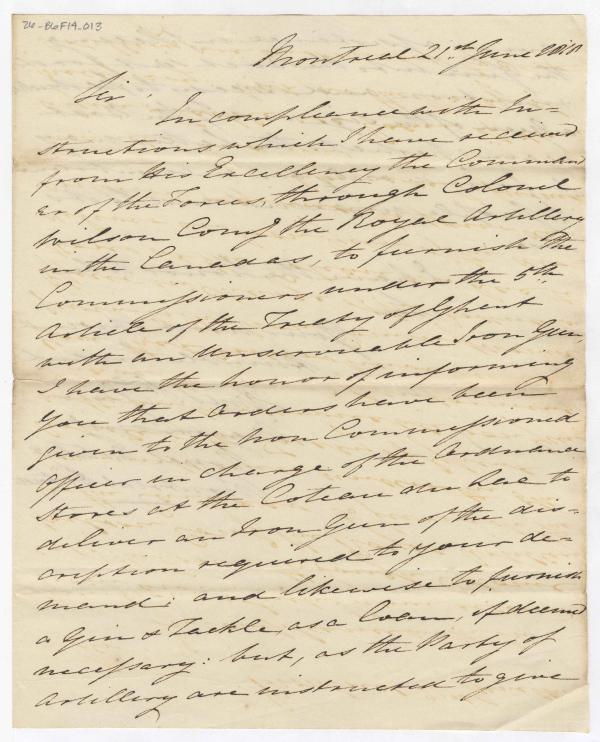 26-B6F14-013
Montreal 21st June 1818
Sir,
In compliance with In=
structions which I have received
from His Excellency the Command
er of the Forces, through Colonel
Wilson Comg the Royal Artillery
in the Canadas, to furnish The
Commissioners under the 5th
Article of the Treaty of Ghent
with an Unserviceable Iron Gun,
I have the honor of informing
you that Orders have been
given to the Non Commissioned
Officer in charge of the Ordnance
Stores at the Coteau du Lac to
deliver an Iron Gun of the dis=
cription required to your de=
mand; and likewise to furnish
a Gin & Tackle, as a Loan, if deemed
necessary: but, as the Party of
Artillery are instructed to give